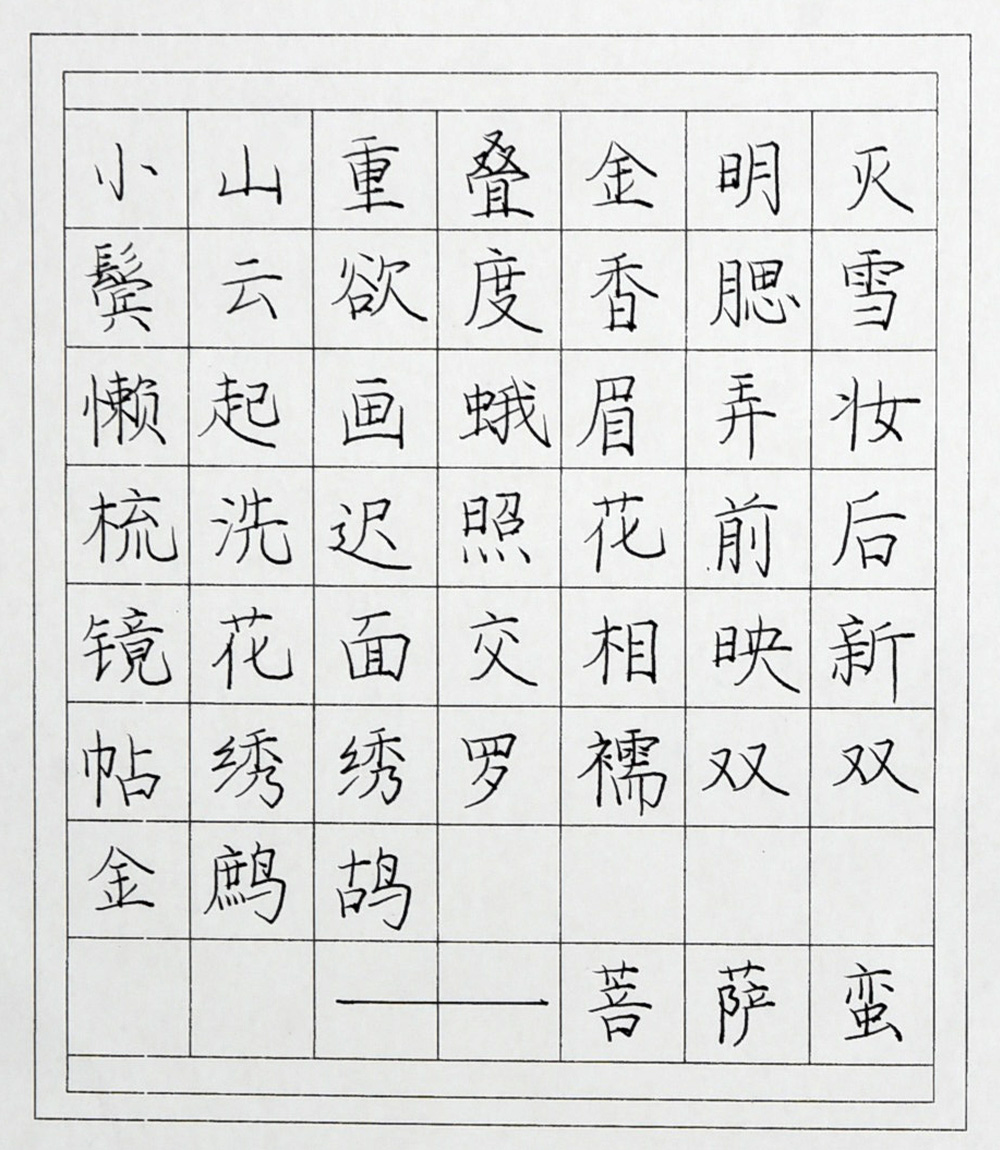 小山重叠金明灭
鬓云欲度香腮雪
懒起画蛾眉弄妆
梳洗迟照花前后
镜花面交相映新
帖绣绣罗襦双双
金鹧鸪
——菩萨蛮